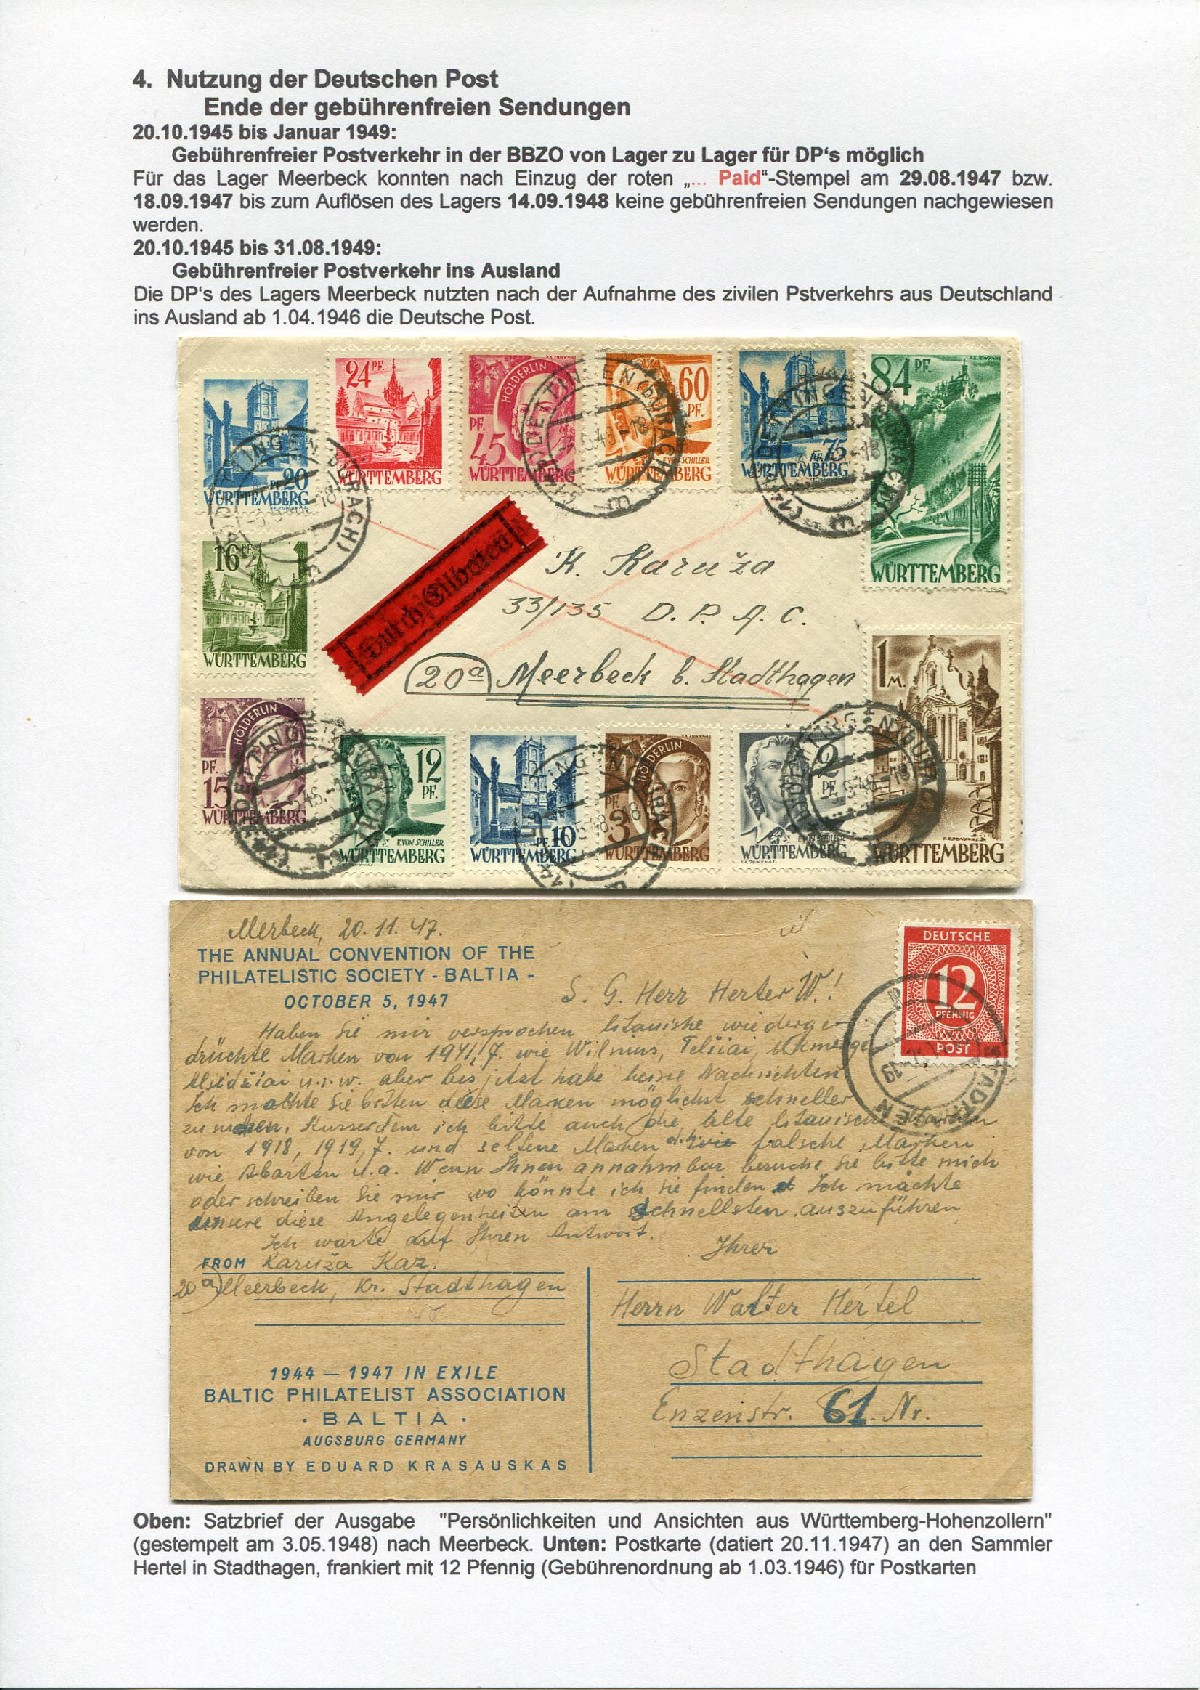 4. Nutzung der Deutschen Post
Ende der gebührenfreien Sendungen
20.10.1945 bis Januar 1949:
Gebührenfreier Postverkehr in der BBZO von Lager zu Lager für DP's möglich
Für das Lager Meerbeck konnten nach Einzug der roten „... Paid"-Stempel am 29.08.1947 bzw.
18.09.1947 bis zum Auflösen des Lagers 14.09.1948 keine gebührenfreien Sendungen nachgewiesen
werden.
20.10.1945 bis 31.08.1949:
Gebührenfreier Postverkehr ins Ausland
Die DP's des Lagers Meerbeck nutzten nach der Aufnahme des zivilen Pstverkehrs aus Deutschland
ins Ausland ab 1.04.1946 die Deutsche Post.
20 WÜRTTEMBERG
24 PF. WÜRTTEMBERG
HÖLDERLIN 45 WÜRTTEMBERG
60 PF. WÜRTTEMBERG
75 WÜRTTEMBERG
84 PF. WÜRTTEMBERG
16 WÜRTTEMBERG
Durch Eilboten
K. Karuža
33/135 D.P.A.C.
20a Meerbeck b. Stadthagen
1 M. WÜRTTEMBERG
HÖLDERLIN PF. 15 WÜRTTEMBERG
12 PF. F.VON SCHILLER WÜRTTEMBERG
PF. 10 WÜRTTEMBERG
HÖLDERLIN PF. 3 WÜRTTEMBERG
2 PF. WÜRTTEMBERG
Merbeck, 20.11.47.
THE ANNUAL CONVENTION OF THE
PHILATELISTIC SOCIETY - BALTIA -
OCTOBER 5, 1947
DEUTSCHE
12
PFENNIG
POST
S. G. Herr Herter W.!
Haben Sie mir versprochen litauische wiederge-
drückte Marken von 1941, 7. wie Wilnius, Telšiai,
u.s.w. aber bis jetzt habe keine Nachrichten.
Ich möchte Sie bitten diese Marken möglichst schneller
zu Ausserdem ich bitte auch die alte litauische
von 1918, 1919, 7. und schöne Marken falsche Marken
wie Abarten u.a. Wenn Ihnen annahmbar besuche Sie bitte mich
oder schreiben Sie mir wo könnte ich Sie finden Ich möchte
unsere diese Angelegenheiten am schnellsten auszuführen
Ich warte auf Ihren Antwort.
Ihrer
FROM Karuža Kaz.
20a) Meerbeck, Kr. Stadthagen
Herrn Walter Hertel
Stadthagen
Enzenstr. 61. Nr.
1944 — 1947 IN EXILE
BALTIC PHILATELIST ASSOCIATION
· BALTIA ·
AUGSBURG GERMANY
DRAWN BY EDUARD KRASAUSKAS
Oben: Satzbrief der Ausgabe "Persönlichkeiten und Ansichten aus Württemberg-Hohenzollern"
(gestempelt am 3.05.1948) nach Meerbeck. Unten: Postkarte (datiert 20.11.1947) an den Sammler
Hertel in Stadthagen, frankiert mit 12 Pfennig (Gebührenordnung ab 1.03.1946) für Postkarten